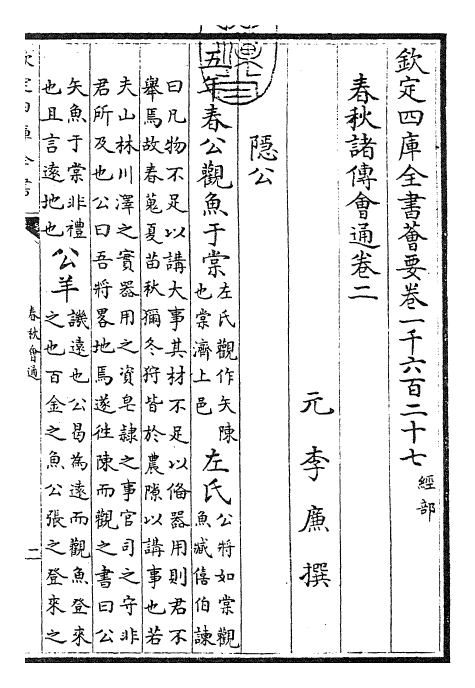 欽定四庫全書薈要卷一千六百二十七 經部
春秋諸傳會通卷二
元 李廉 撰
隱公
五年春公觀魚于棠 左氏觀作矢陳也棠濟上邑 左氏 公將如棠觀魚臧僖伯諫
曰凡物不足以講大事其材不足以備器用則君不
舉焉故春蒐夏苗秋獮冬狩皆於農隙以講事也若
夫山林川澤之實器用之資皂隸之事官司之守非
君所及也公曰吾將畧地焉遂往陳而觀之書曰公
矢魚于棠非禮也且言遠地也 公羊 譏遠也公曷為遠而觀魚登來之也百金之魚公張之登來之
欽定四庫全書
春秋會通
二